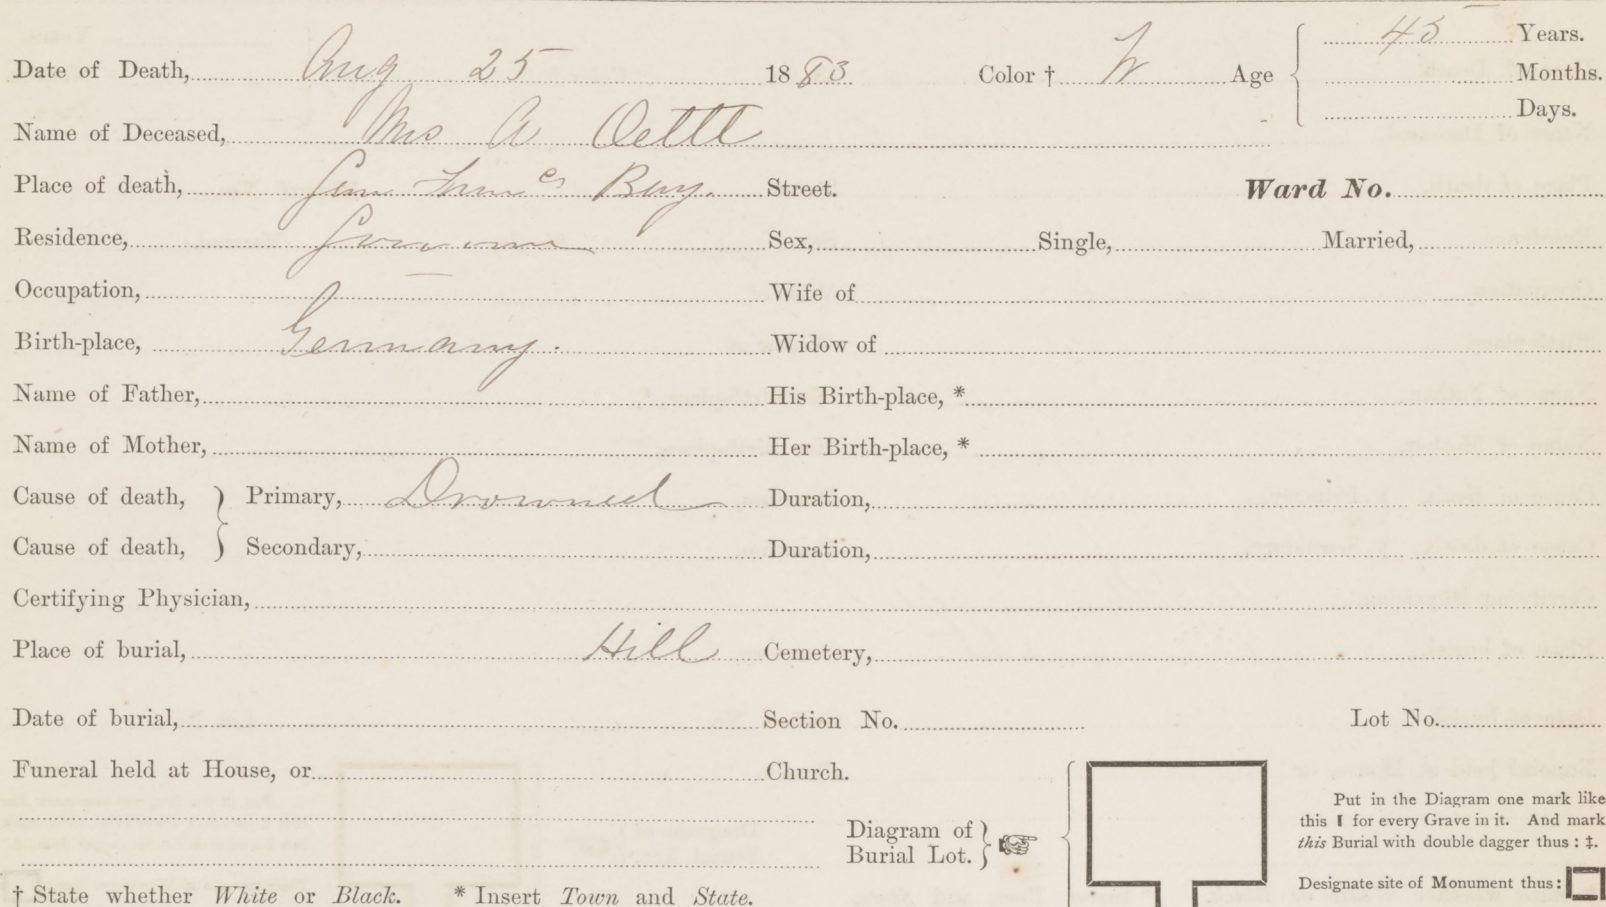 45 Years.
Date of Death, Aug 25 1883 Color † W Age Months.
Days.
Name of Deceased, Mrs A Oettl
Place of death, San Fran cs Bay. Street. Ward No.
Residence, Sonoma Sex, Single, Married,
Occupation, Wife of
Birth-place, Germany. Widow of
Name of Father, His Birth-place, *
Name of Mother, Her Birth-place, *
Cause of death, } Primary, Drowned Duration,
Cause of death, } Secondary, Duration,
Certifying Physician,
Place of burial, Hill Cemetery,
Date of burial, Section No. Lot No.
Funeral held at House, or Church.
Diagram of
Burial Lot.
Put in the Diagram one mark like
this ❙ for every Grave in it. And mark
this Burial with double dagger thus : ‡.
Designate site of Monument thus:
† State whether White or Black. * Insert Town and State.